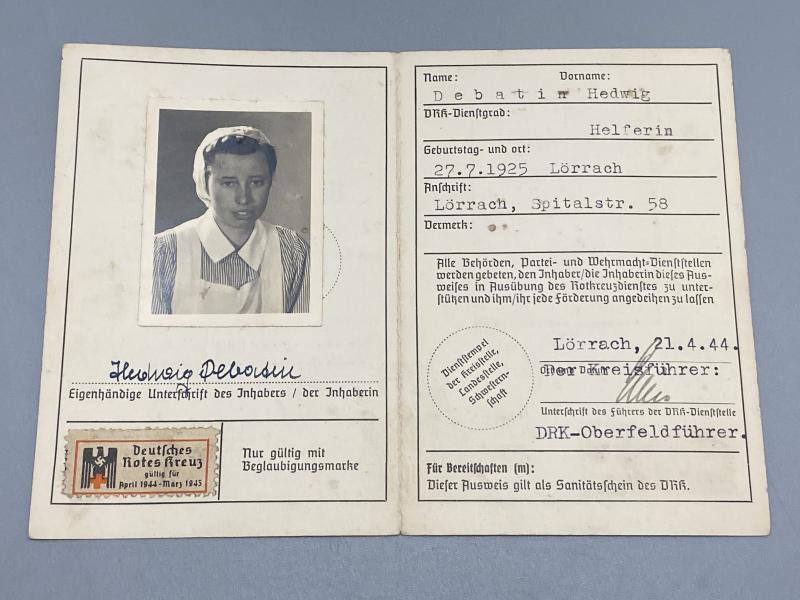 Hedwig Debatin
Eigenhändige Unterschrift des Inhabers / der Inhaberin
Deutsches
Rotes Kreuz
gültig für
April 1944-März 1945
Nur gültig mit
Beglaubigungsmarke
Name: Vorname:
Debatin Hedwig
DRK-Dienstgrad:
Helferin
Geburtstag- und ort:
27.7.1925 Lörrach
Anschrift:
Lörrach, Spitalstr. 58
Vermerk:
Alle Behörden, Partei- und Wehrmacht-Dienststellen
werden gebeten, den Inhaber/die Inhaberin dieses Aus-
weises in Ausübung des Rotkreuzdienstes zu unter-
stützen und ihm/ihr jede Förderung angedeihen zu lassen
Dienststempel
der Kreisstelle,
Landesstelle,
Schwestern-
schaft
Lörrach, 21.4.44.
Der Kreisführer:
Unterschrift des Führers der DRK-Dienststelle
DRK-Oberfeldführer.
Für Bereitschaften (m):
Dieser Ausweis gilt als Sanitätsschein des DRK.